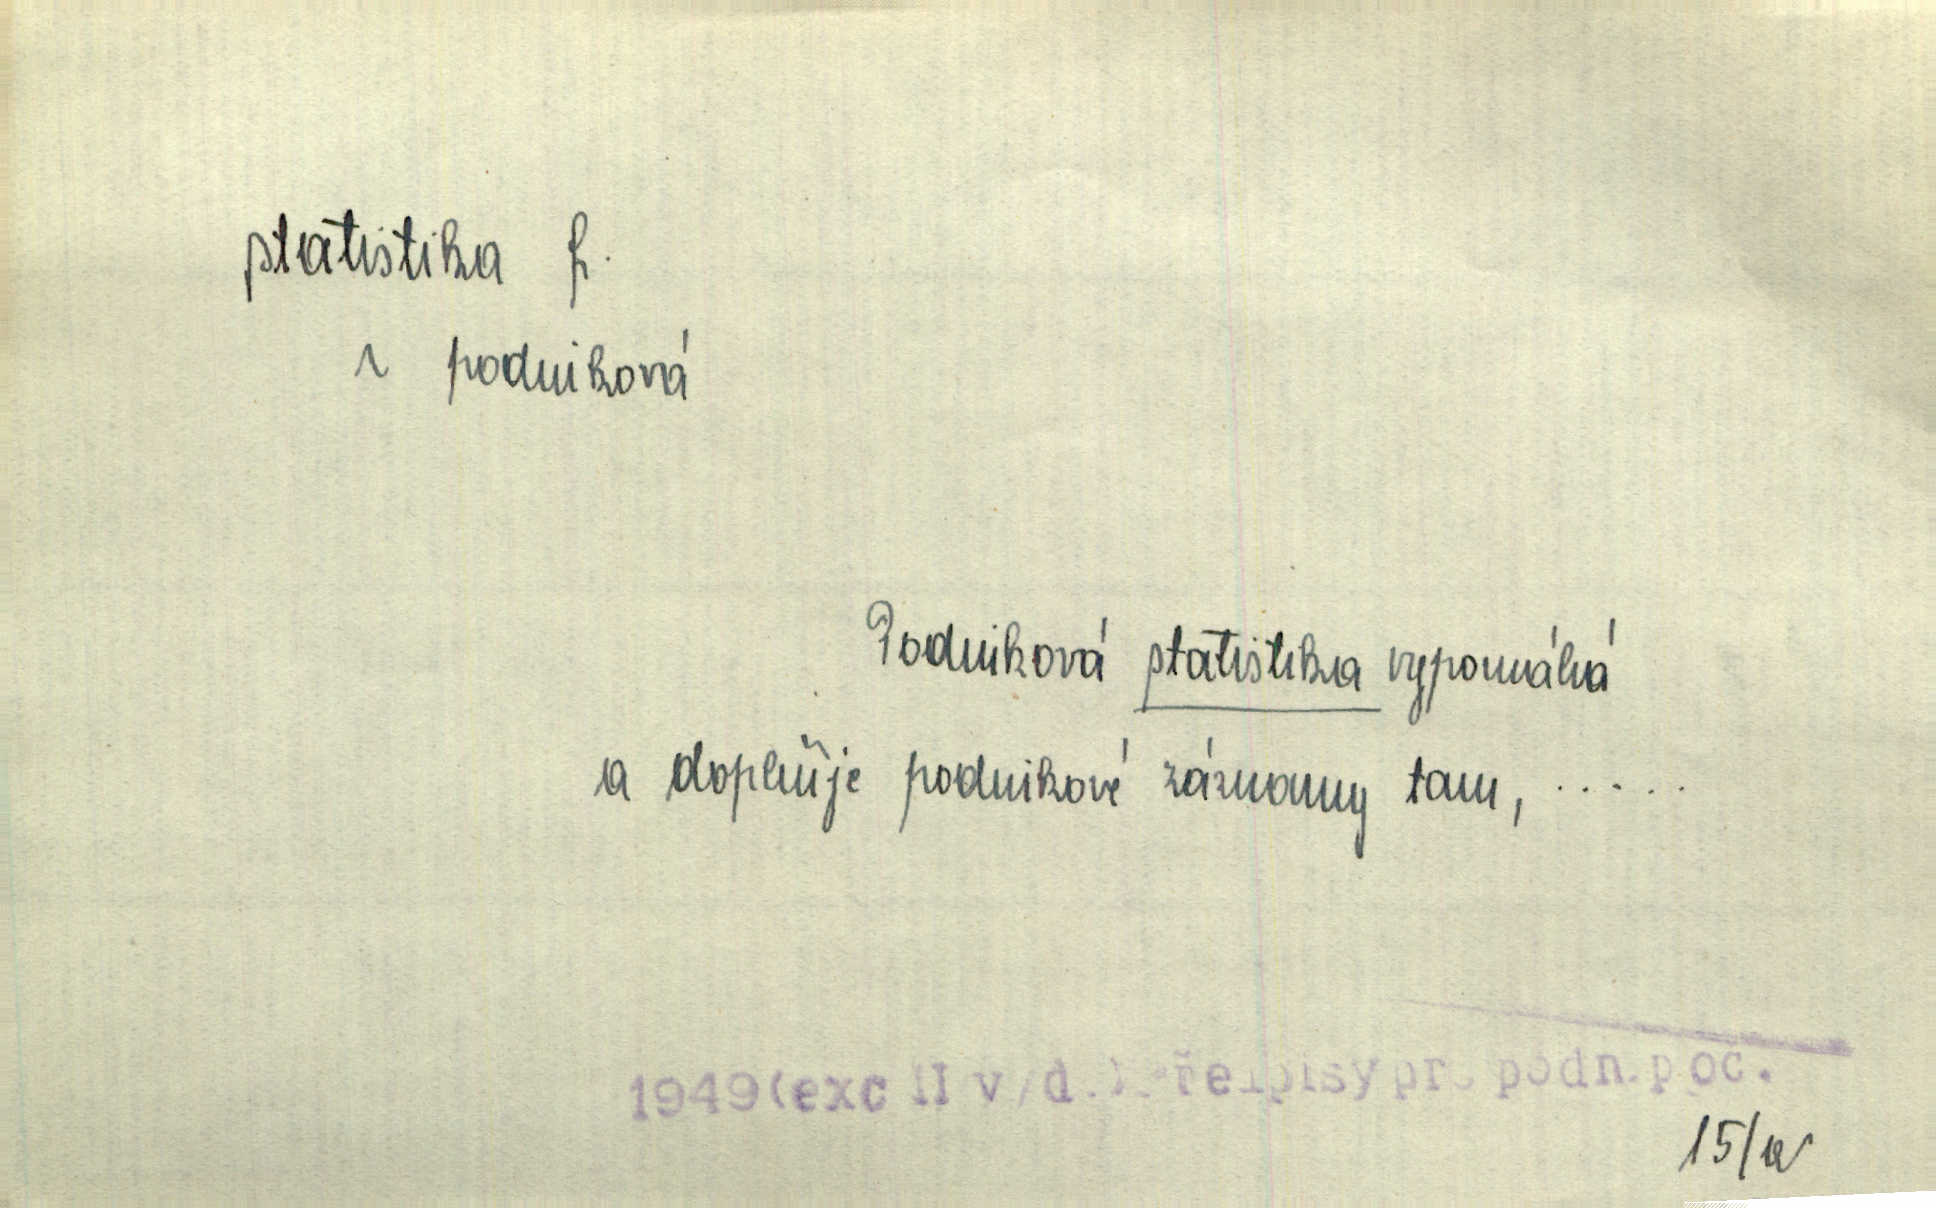 statistika f.
~ podniková
Podniková statistika vypomáhá
a doplňuje podnikové záznamy tam, .....
1949 (exc II v/d.) Předpisy pro podn. poč.
15/a